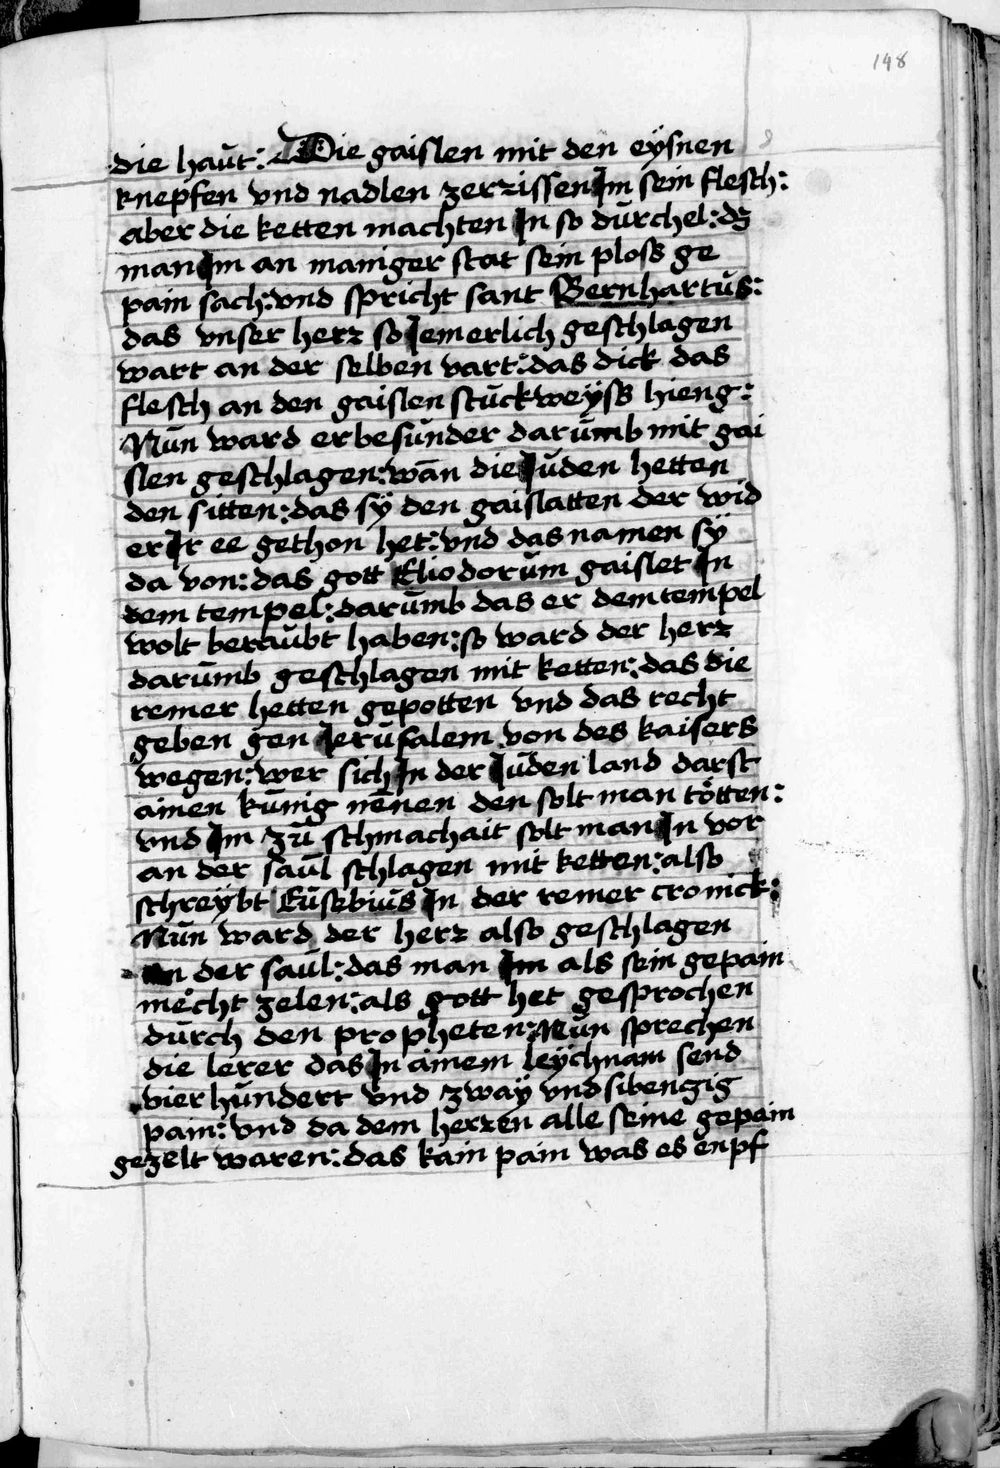 148
die haut: Die gaislen mit den eÿsnen
knepfen vnd nadlen zerzissen Im sein flesch:
aber die ketten machten In so durchel: dz
man Im an maniger stat sein ploss ge
pain sach: vnd spricht sant Bernhartus:
das vnser herz so Iemerlich geschlagen
wart an der selben vart: das dick das
flesch an den gaislen stuckweÿss hieng:
Nun ward er besunder darumb mit gai
slen geschlagen: wañ die Iuden hetten
den sitten: das sÿ den gaislatten der wid
er Ir ee gethon het: vnd das namen sÿ
da von: das gott Eliodorum gaislet In
dem tempel: darumb das er dem tempel
wolt beraubt haben: so ward der herz
darumb geschlagen mit ketten: das die
remer hetten gepotten vnd das recht
geben gen Ierusalem von des kaisers
wegen: wer sich In der Iuden land darst
ainen kunig nēnen den solt man tötten:
vnd Im zu schmachait solt man In vor
an der saul schlagen mit ketten: also
schreÿbt Eusebius In der remer cronick:
Nun ward der herz also geschlagen
an der saul: das man Im als sein gepain
mecht zelen: als gott het gesprochen
durch den propheten: Nun sprechen
die lerer das In ainem leÿchnam send
vier hundert vnd zwaÿ vnd sibenzig
pain: vnd da dem herzen alle seine gepain
gezelt waren: das kain pain was es enpf